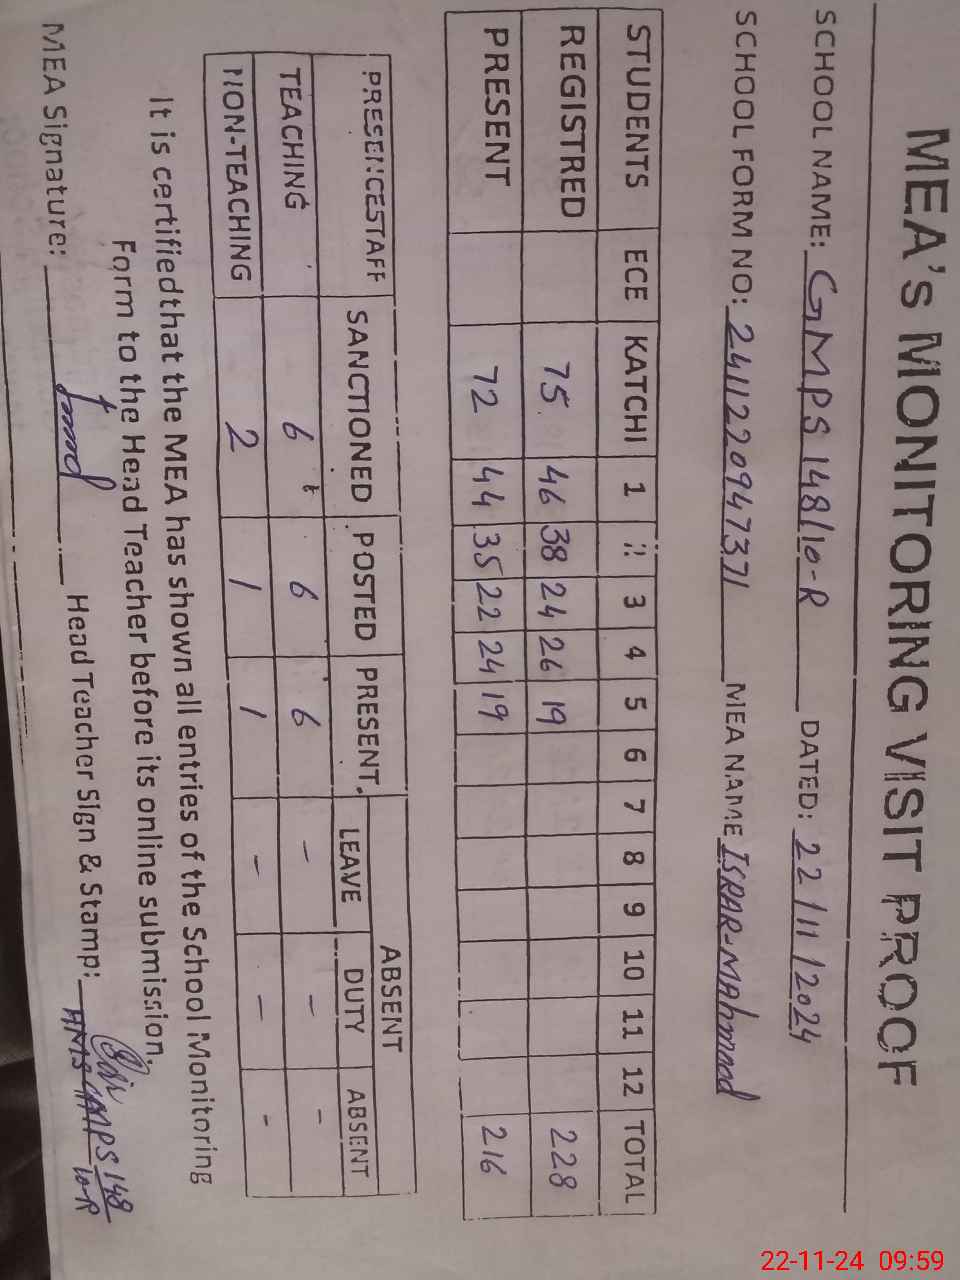 MEA's MONITORING VISIT PROOF
SCHOOL NAME: GMPS 148/10-R DATED: 22/11/2024
SCHOOL FORM NO: 241122094737 MEA NAME ISRAR-MAHMOOD
STUDENTS ECE KATCHI 1 2 3 4 5 6 7 8 9 10 11 12 TOTAL
REGISTRED 75 46 38 24 26 19 228
PRESENT 72 44 35 22 24 19 216
ABSENT
PRESENCESTAFF SANCTIONED POSTED PRESENT LEAVE DUTY ABSENT
TEACHING 6 6 6 - - -
NON-TEACHING 2 1 1 - - -
It is certifiedthat the MEA has shown all entries of the School Monitoring
Form to the Head Teacher before its online submission.
MEA Signature: Head Teacher Sign & Stamp:
GMPS 148
10-R
22-11-24 09:59